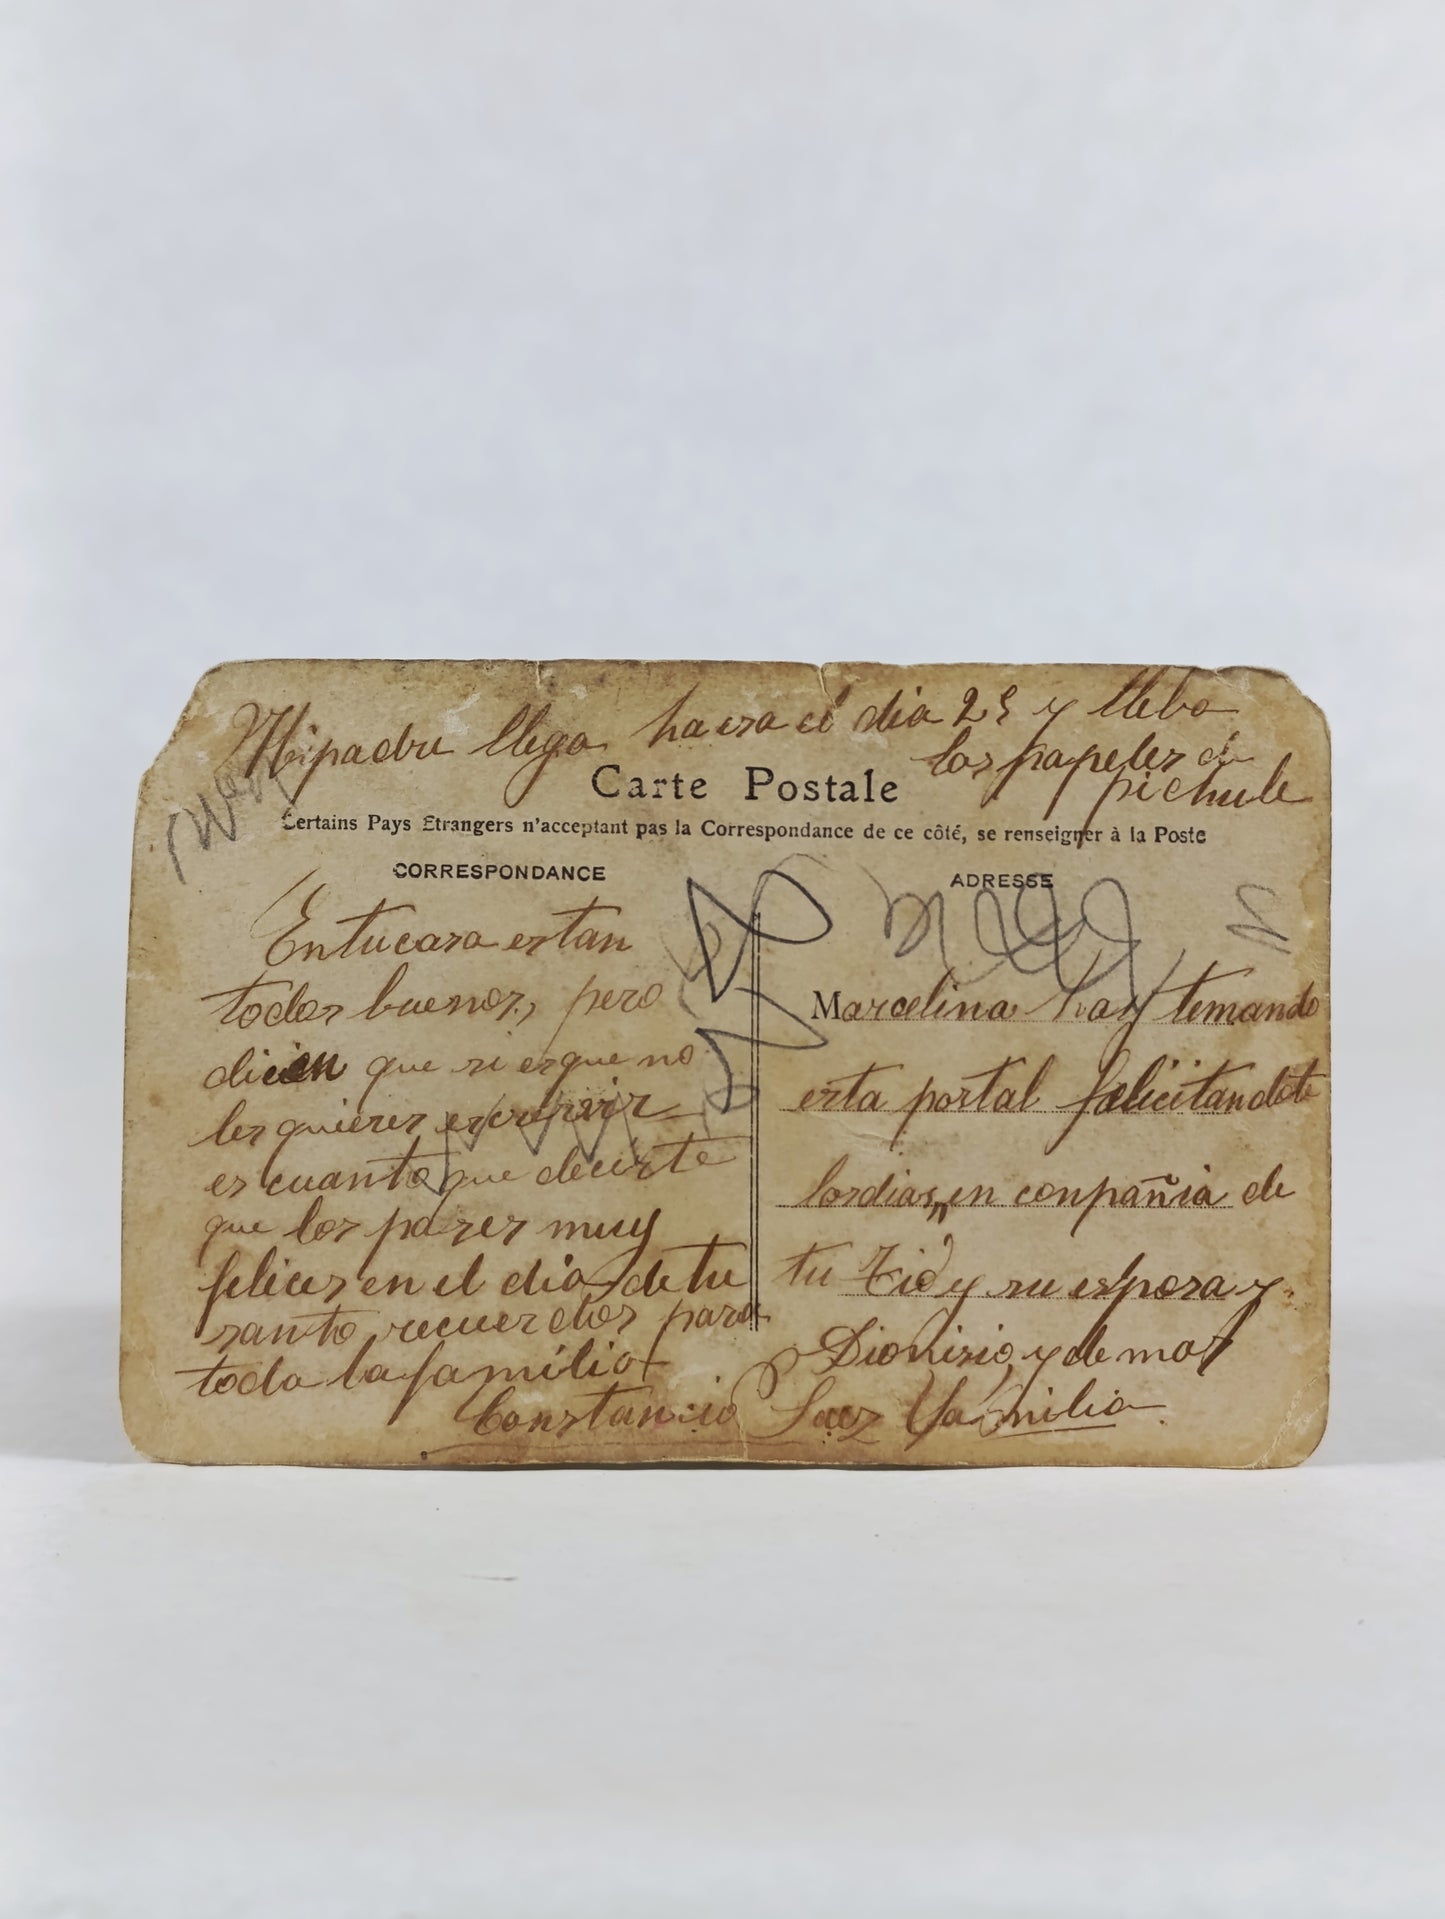 Mi padre llega hacia el dia 25 y lleba
los papeles de
pichule
Carte Postale
Certains Pays Etrangers n'acceptant pas la Correspondance de ce côté, se renseigner à la Poste
CORRESPONDANCE
En tu casa estan
todos buenos, pero
dicien que si es que no
les quieres escrivir
es cuanto que decirte
que los pases muy
felices en el dia de tu
santo recuerdos para
toda la familia
Constancio Saez Familia
ADRESSE
Marcelina hay te mando
esta postal felicitandote
los dias, en conpañia de
tu Tio y su esposa y
Dionisio, y demas